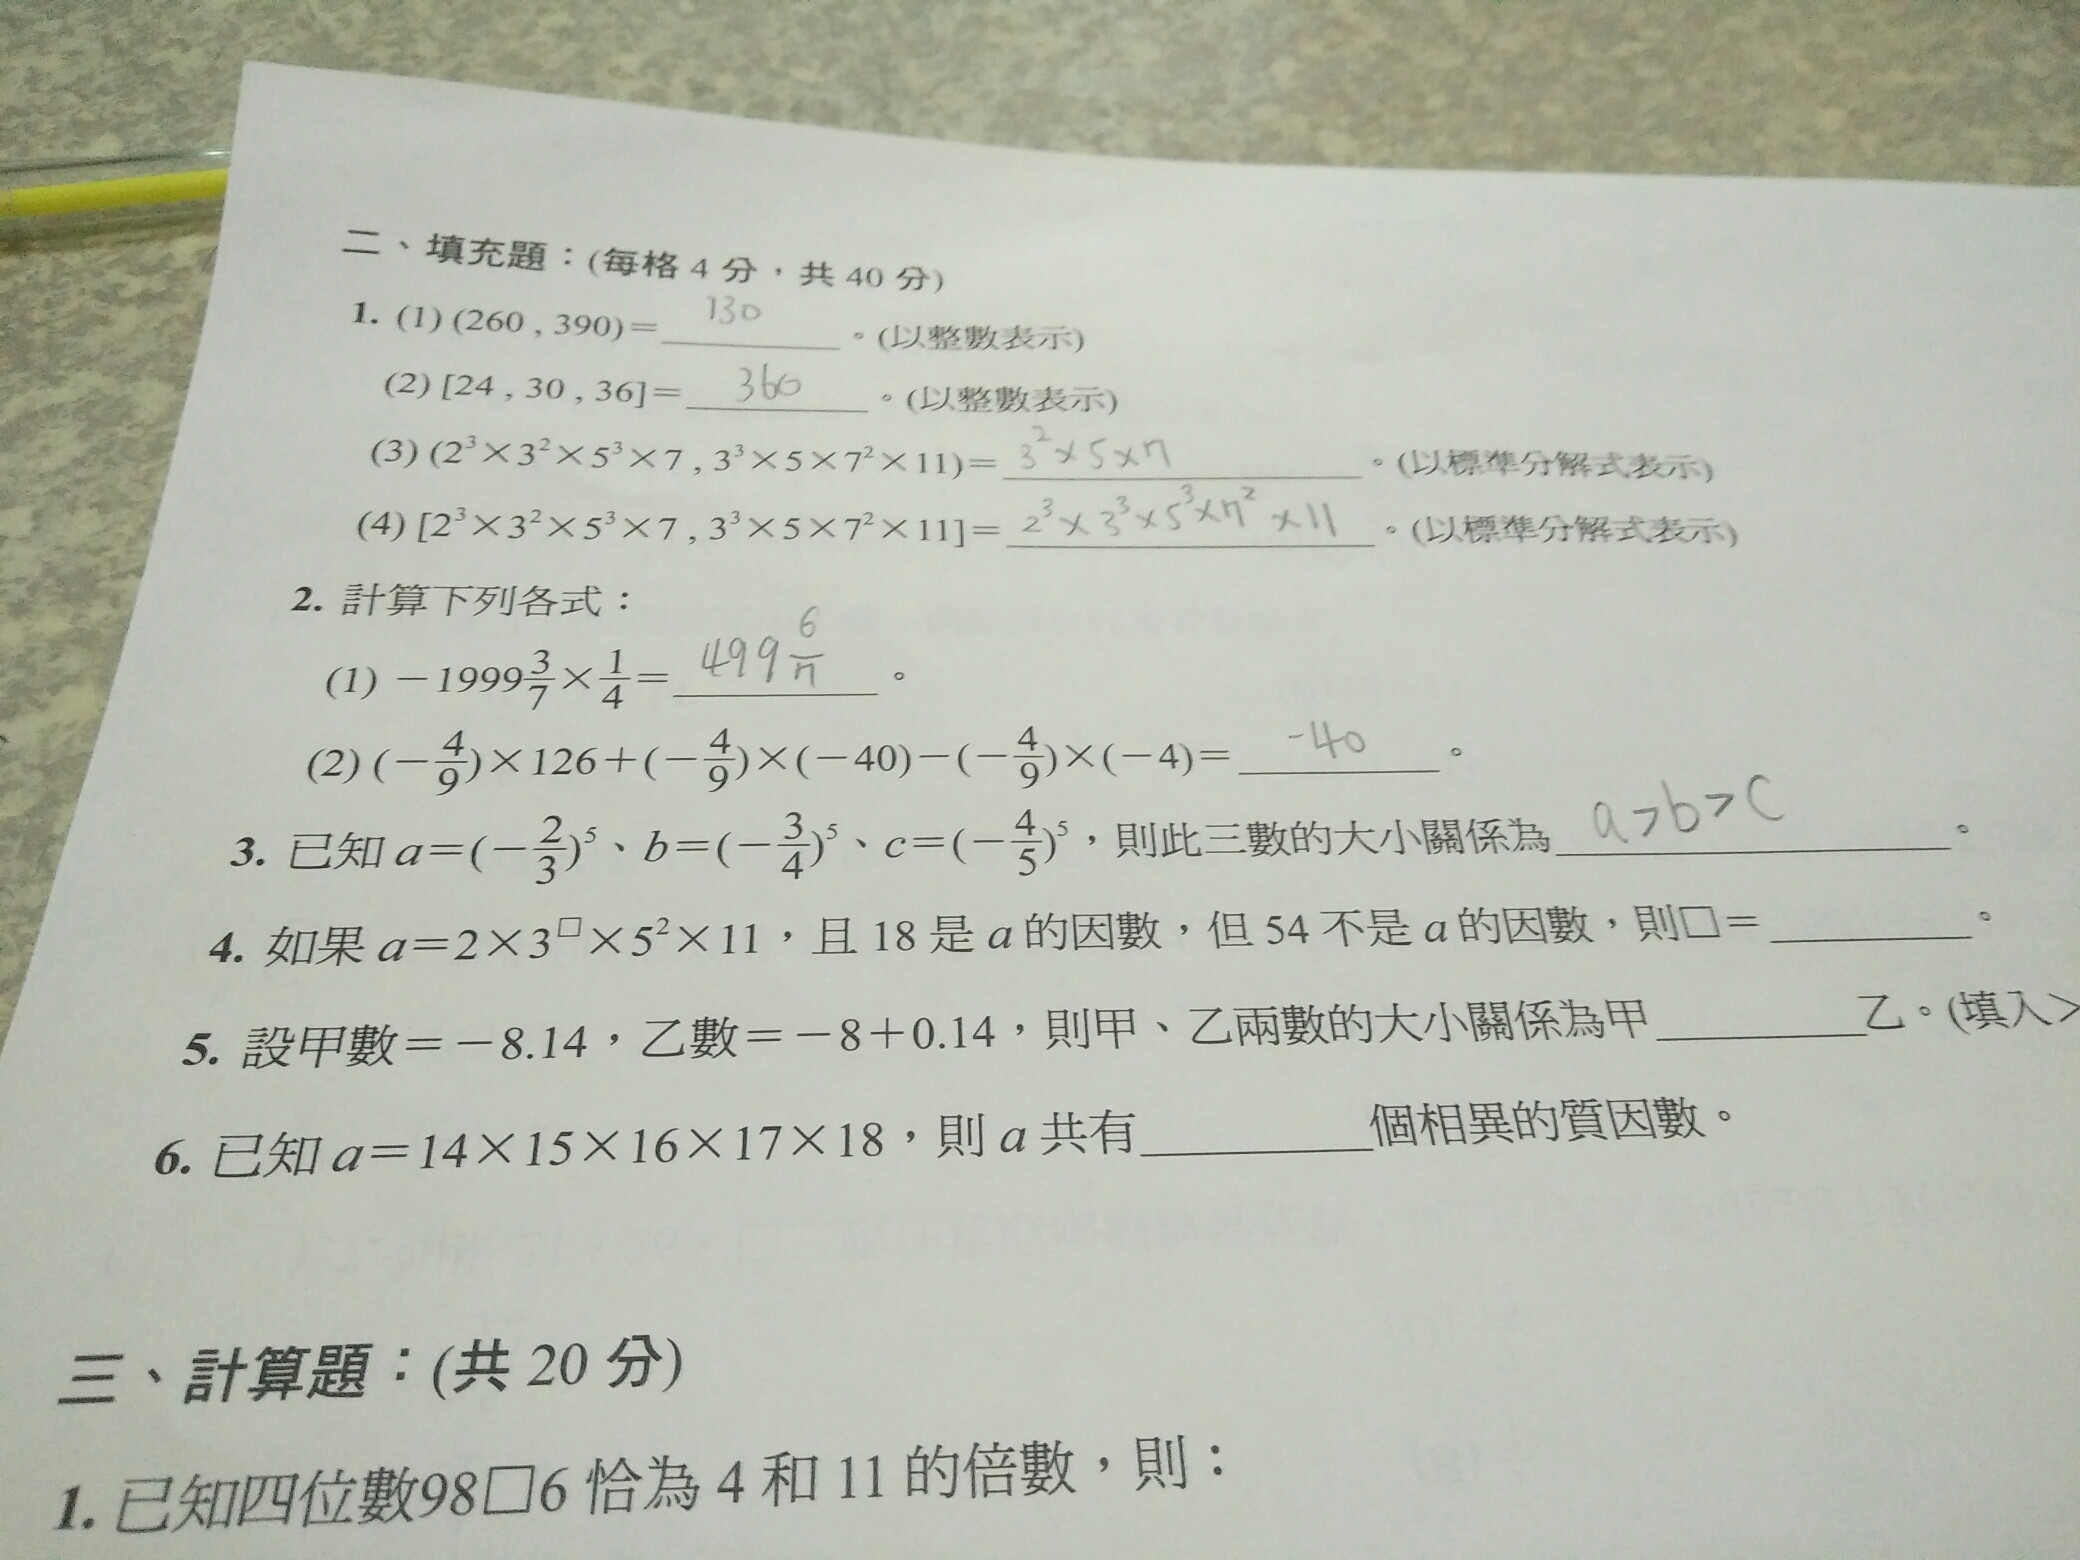 二、填充題：(每格 4 分，共 40 分)
1. (1) (260 , 390)＝ 130 。(以整數表示)
(2) [24 , 30 , 36]＝ 360 。(以整數表示)
(3) (2³×3²×5³×7 , 3³×5×7²×11)＝ 3²×5×7 。(以標準分解式表示)
(4) [2³×3²×5³×7 , 3³×5×7²×11]＝ 2³×3³×5³×7²×11 。(以標準分解式表示)
2. 計算下列各式：
(1) －1999 3/7 × 1/4＝ 499 6/7 。
(2) (－4/9)×126＋(－4/9)×(－40)－(－4/9)×(－4)＝ -40 。
3. 已知 a＝(－2/3)⁵、b＝(－3/4)⁵、c＝(－4/5)⁵，則此三數的大小關係為 a>b>c 。
4. 如果 a＝2×3^□×5²×11，且 18 是 a 的因數，但 54 不是 a 的因數，則□＝＿＿＿＿。
5. 設甲數＝－8.14，乙數＝－8＋0.14，則甲、乙兩數的大小關係為甲＿＿＿＿乙。(填入＞
6. 已知 a＝14×15×16×17×18，則 a 共有＿＿＿＿個相異的質因數。
三、計算題：(共 20 分)
1. 已知四位數98□6 恰為 4 和 11 的倍數，則：